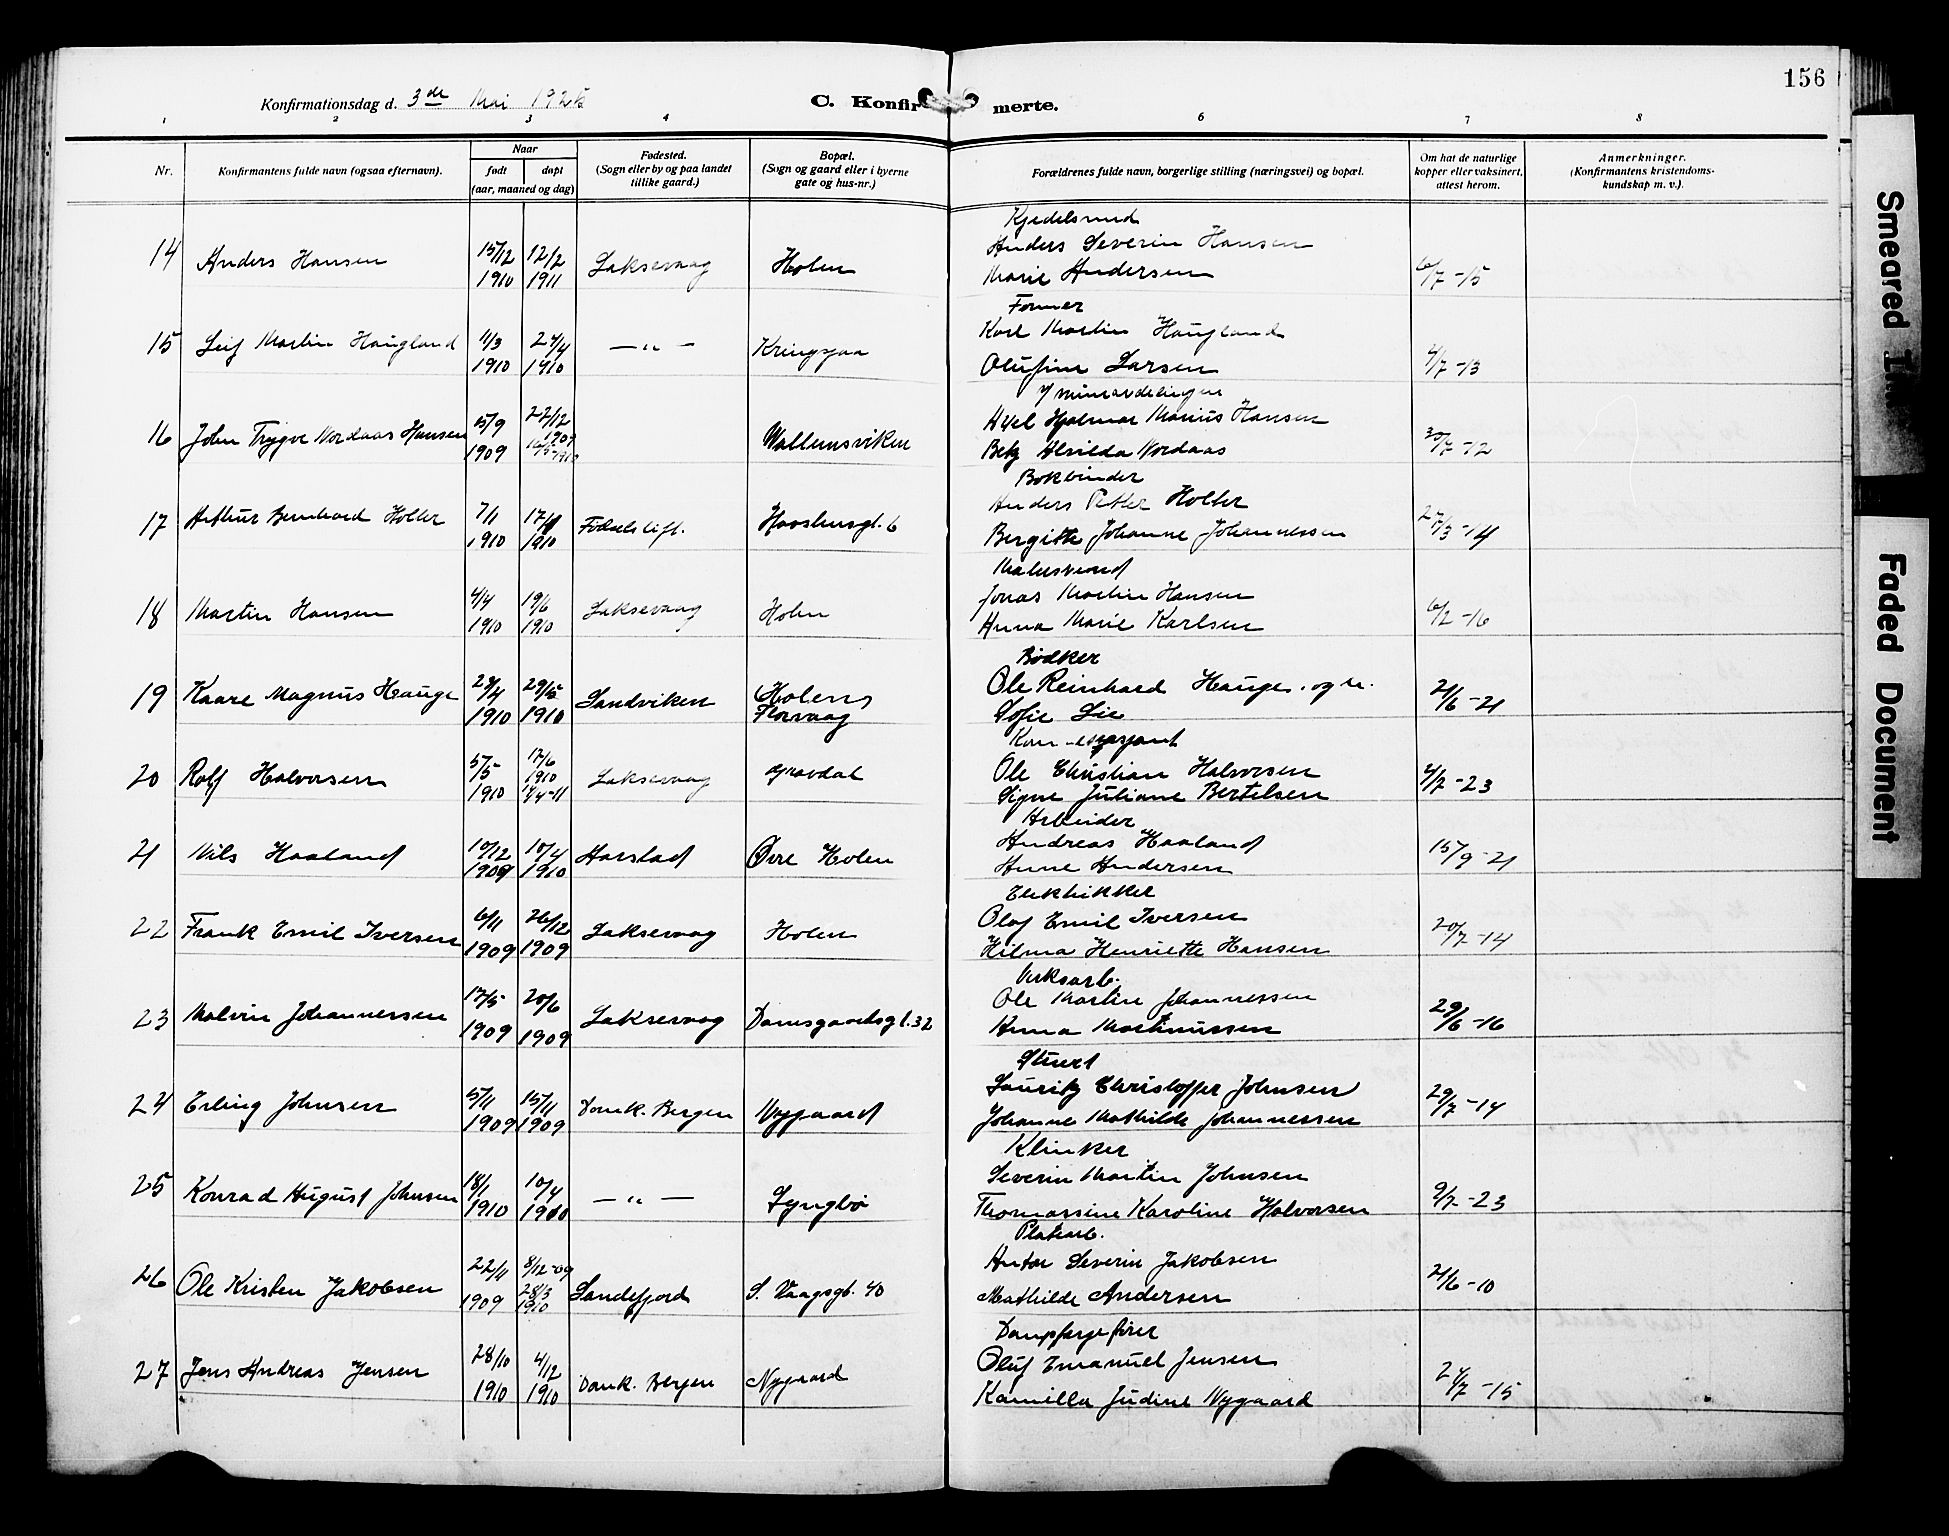 156
Konfirmationsdag d. 3de Mai 1925
C. Konfirmerte.
1 2 3 4 6 7 8
Nr.
Konfirmantens fulde navn (ogsaa efternavn).
Naar
født døpt
(aar, maaned og dag)
Fødested.
(Sogn eller by og paa landet
tillike gaard.)
Bopæl.
(Sogn og gaard eller i byerne
gate og hus-nr.)
Forældrenes fulde navn, borgerlige stilling (næringsvei) og bopæl.
Om hat de naturlige
kopper eller vaksinert,
attest herom.
Anmerkninger.
(Konfirmantens kristendoms-
kundskap m. v.).
Kjedelsmed
14 Anders Hansen 15/12 12/2 Laksevaag Holen Anders Severin Hansen
1910 1911 Marie Andersen 6/7-15
Former
15 Leif Martin Haugland 11/3 24/4 — „ — Kringsjaa Karl Martin Haugland
1910 1910 Olufine Larsen 4/7-13
Mineavdelingen
16 John Trygve Nordaas Hansen 5/9 22/12 1909 Wallemsviken Axel Hjalmar Marius Hansen
1909 Alvilda Nordaas 30/7-12
Bokbinder
17 Arthur Bernhard Holter 7/1 Fødselstift. 6 Anders Petter Holter
1910 1910 Bergitte Johanne Johannessen 27/3-14
Malersvend
18 Martin Hansen 4/4 19/6 Laksevaag Holen Jonas Martin Hansen
1910 1910 Anna Marie Karlsen 6/2-16
Bødker
19 Kaare Magnus Hauge 29/5 Sandviken Holen Ole Reinhard Hauge. og h.
1910 1910 Florvaag Sofie Lie 21/6-21
20 Rolf Halvorsen 5/5 17/6 1910 Laksevaag Gravdal Ole Christian Halvorsen
1910 Signe Juliane Bertelsen 4/7-23
Arbeider
21 Nils Haaland 10/12 10/4 Harstad Øvre Holen Andreas Haaland
1909 1910 Anne Andersen 15/9-21
Elektrikker
22 Frank Emil Iversen 6/11 26/12 Laksevaag Holen Olaf Emil Iversen
1909 1909 Hilma Henriette Hansen 20/7-14
Verksarb.
23 Malvin Johannessen 17/5 20/6 Laksevaag Damsgaardsgt. 32 Ole Martin Johannessen
1909 1909 Anna Martinussen 29/6-16
Stuert
24 Erling Johnsen 5/11 15/11 Domk. Bergen Nygaard Lauritz Christoffer Johnsen
1909 1909 Johanne Mathilde Johannessen 29/7-14
Klinker
25 Konrad August Johnsen 18/1 10/4 — „ — Lyngbø Severin Martin Johnsen
1910 1910 Thomassine Karoline Halvorsen 9/7-23
Platearb.
26 Ole Kristen Jakobsen 22/11 8/12-09 Sandefjord S. Vaagsgt. 40 Anton Severin Jakobsen
1909 28/3 1910 Mathilde Andersen 21/6-10
Dampfærgefører
27 Jens Andreas Jensen 28/10 4/12 Domk. Bergen Nygaard Oluf Emanuel Jensen
1910 1910 Kamilla Judine Nygaard 24/7-15
Smeared
Faded Document